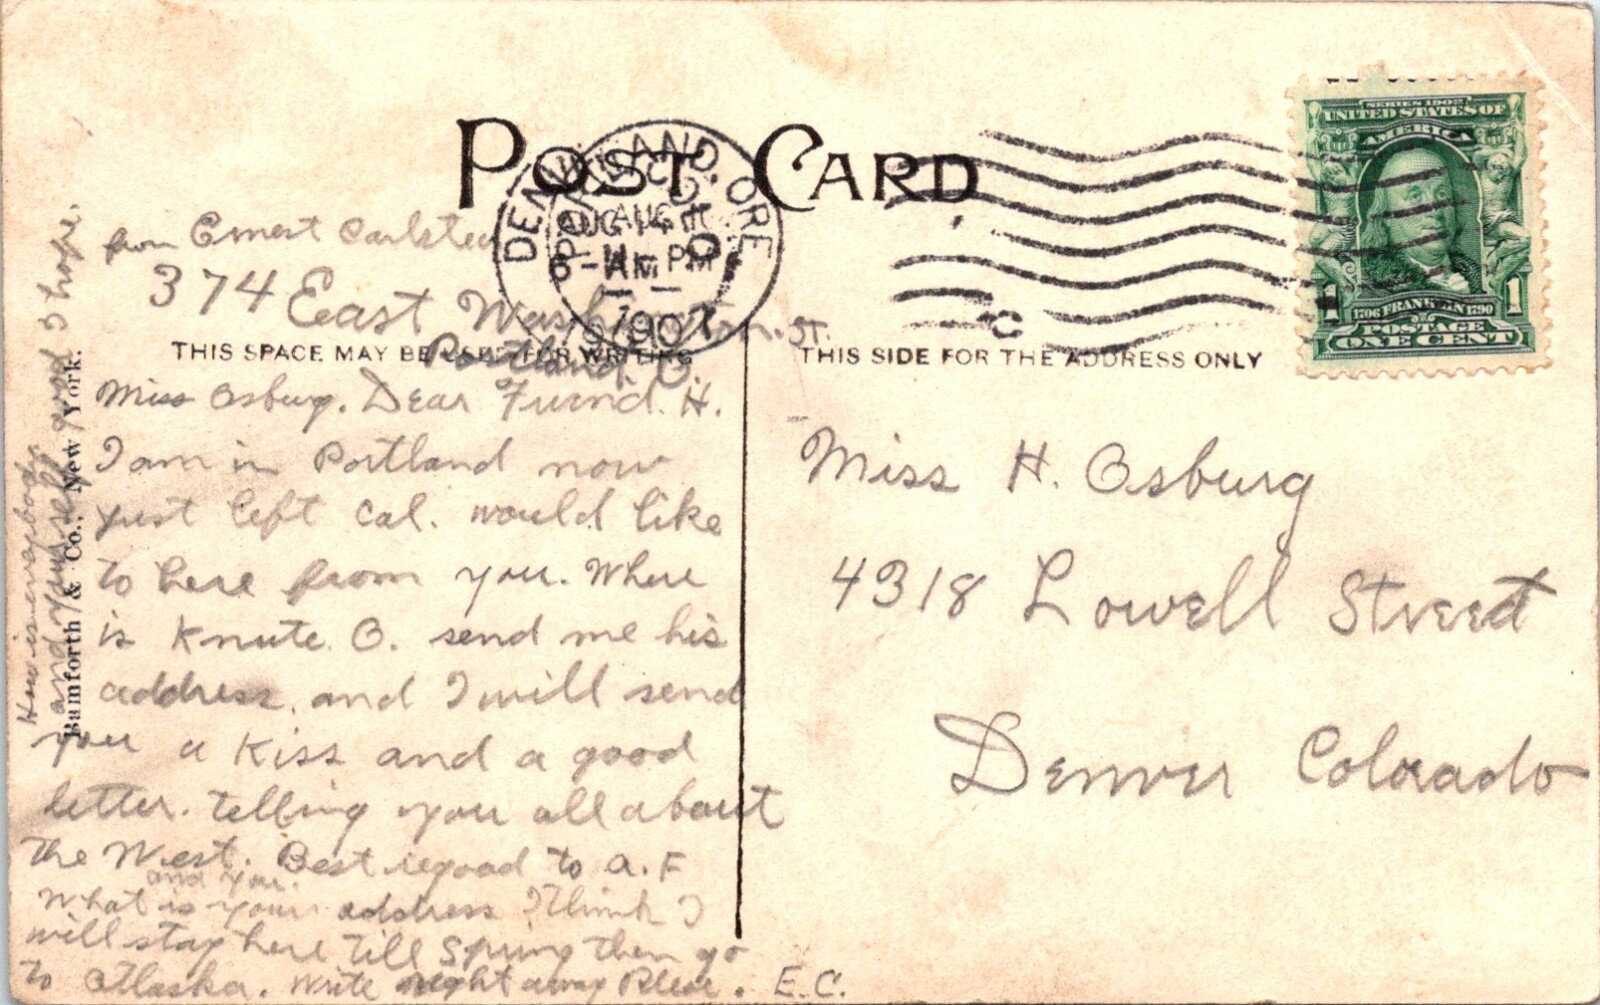 POST CARD
PORTLAND, ORE
AUG
PM
1907
SERIES 1902
UNITED STATES OF
AMERICA
1 1
1706 FRANKLIN 1790
POSTAGE
ONE CENT
from Ernest Carlsten
374 East Washington. St.
Portland, O
THIS SPACE MAY BE USED FOR WRITING
THIS SIDE FOR THE ADDRESS ONLY
Miss Osburg. Dear Friend. H.
I am in Portland now
just left Cal. would like
to here from you. Where
is Knute. O. send me his
address. and I will send
you a Kiss and a good
letter. telling you all about
the West. Best regard to A. F
and you.
What is your address I think I
will stay here till Spring then go
to Atlaska. Write right away Please. E.C.
How is everybody
and yourself good I hope.
Bamforth & Co., New York.
Miss H. Osburg
4318 Lowell Street
Denver Colorado